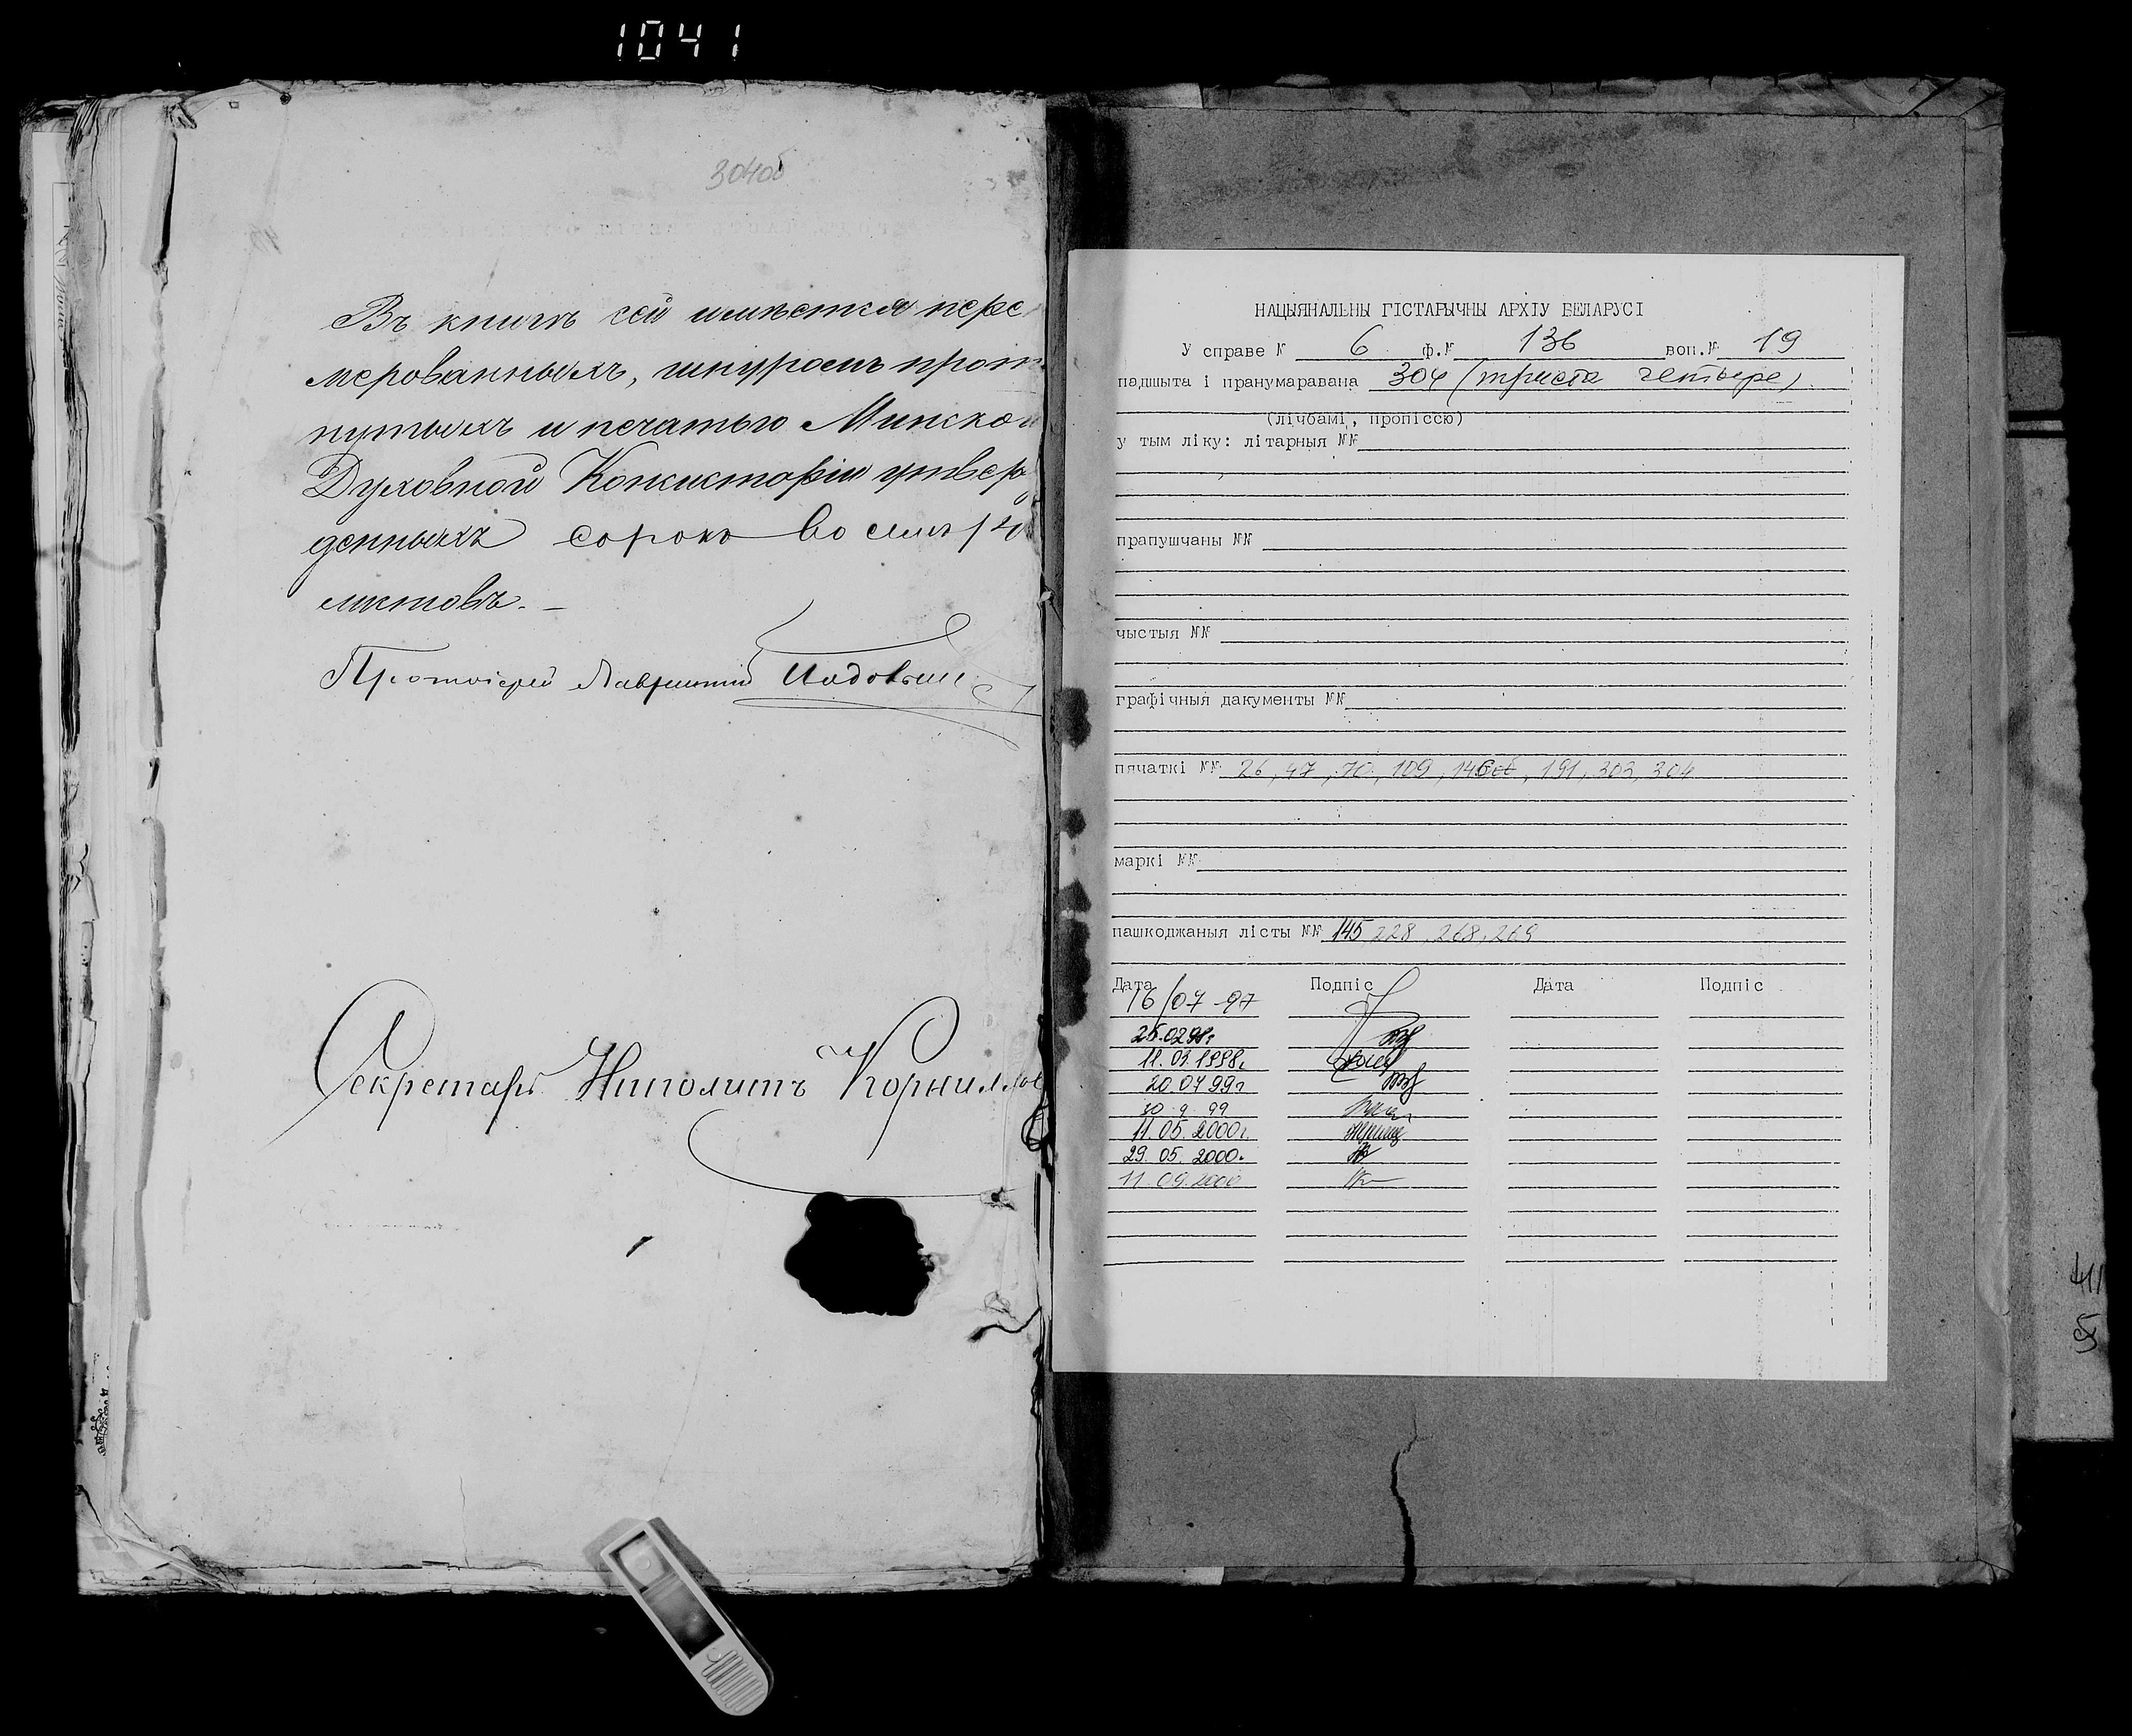 1041
304об
Въ книгѣ сей имѣется пере
мерованныхъ, шнуромъ прот
нутыхъ и печатью Минской
Духовной Консисторіи утвер
денныхъ сорокъ восемь (4
листовъ. –
Протоіерей Лаврентій
Секретарь Иполитъ Корнилов
НАЦЫЯНАЛЬНЫ ГІСТАРЫЧНЫ АРХІУ БЕЛАРУСІ
У справе № 6 ф.№ 136 воп.№ 19
падшыта і пранумаравана 304 (триста четыре)
(лічбамі, пропіссю)
у тым ліку: літарныя №№
прапушчаны №№
чыстыя №№
графічныя дакументы №№
пячаткі №№ 26, 47, 70, 109, 146об, 191, 303, 304
маркі №№
пашкоджаныя лісты №№ 145, 228, 268, 269
Дата Подпіс Дата Подпіс
16/07-97
25.02.98г
11.03.1998г.
20.07.99г
30.9.99
11.05.2000г.
29.05.2000.
11.09.2000